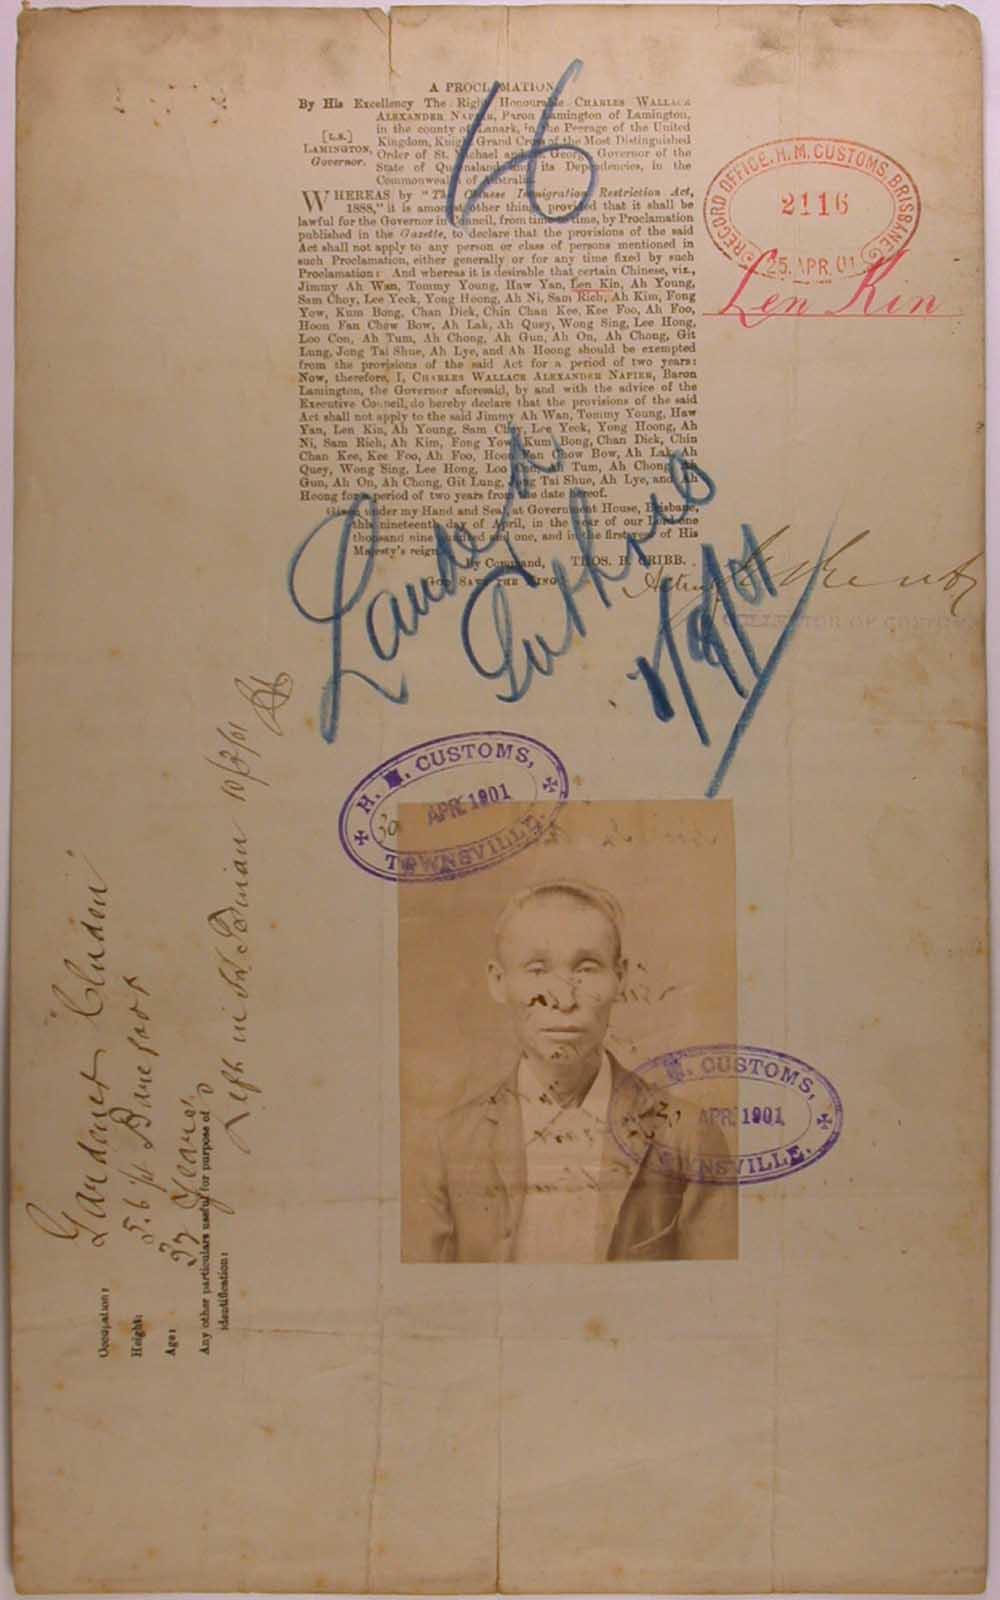 A PROCLAMATION
By His Excellency The Right Honourable CHARLES WALLACE
ALEXANDER NAPIER, Baron Lamington of Lamington,
in the county of Lanark, in the Peerage of the United
Kingdom, Knight Grand Cross of the Most Distinguished
Order of St. Michael and St. George, Governor of the
State of Queensland and its Dependencies, in the
Commonwealth of Australia.
[L.S.]
LAMINGTON,
Governor.
WHEREAS by "The Chinese Immigration Restriction Act,
1888," it is amongst other things provided that it shall be
lawful for the Governor in Council, from time to time, by Proclamation
published in the Gazette, to declare that the provisions of the said
Act shall not apply to any person or class of persons mentioned in
such Proclamation, either generally or for any time fixed by such
Proclamation: And whereas it is desirable that certain Chinese, viz.,
Jimmy Ah Wan, Tommy Young, Haw Yan, Len Kin, Ah Young,
Sam Choy, Lee Yeck, Yong Hoong, Ah Ni, Sam Rich, Ah Kim, Fong
Yow, Kum Bong, Chan Dick, Chin Chan Kee, Kee Foo, Ah Foo,
Hoon Fan Chow Bow, Ah Lak, Ah Quey, Wong Sing, Lee Hong,
Loo Con, Ah Tum, Ah Chong, Ah Gun, Ah On, Ah Chong, Git
Lung, Jong Tai Shue, Ah Lye, and Ah Hoong should be exempted
from the provisions of the said Act for a period of two years:
Now, therefore, I, CHARLES WALLACE ALEXANDER NAPIER, Baron
Lamington, the Governor aforesaid, by and with the advice of the
Executive Council, do hereby declare that the provisions of the said
Act shall not apply to the said Jimmy Ah Wan, Tommy Young, Haw
Yan, Len Kin, Ah Young, Sam Choy, Lee Yeck, Yong Hoong, Ah
Ni, Sam Rich, Ah Kim, Fong Yow, Kum Bong, Chan Dick, Chin
Chan Kee, Kee Foo, Ah Foo, Hoon Fan Chow Bow, Ah Lak, Ah
Quey, Wong Sing, Lee Hong, Loo Con, Ah Tum, Ah Chong, Ah
Gun, Ah On, Ah Chong, Git Lung, Jong Tai Shue, Ah Lye, and Ah
Hoong for a period of two years from the date hereof.
Given under my Hand and Seal, at Government House, Brisbane,
this nineteenth day of April, in the year of our Lord one
thousand nine hundred and one, and in the first year of His
Majesty's reign.
By Command, THOS. B. CRIBB.
GOD SAVE THE KING!
16
RECORD OFFICE, H. M. CUSTOMS, BRISBANE
2116
25. APR. 01
Len Kin
COLLECTOR OF CUSTOMS
H. M. CUSTOMS,
30 APR. 1901
TOWNSVILLE.
H. M. CUSTOMS,
APR. 1901
TOWNSVILLE.
Occupation: Gardener Cluden
Height: 5.6 ft Barefoot
Age: 37 Years
Any other particulars useful for purpose of
identification:
Left in